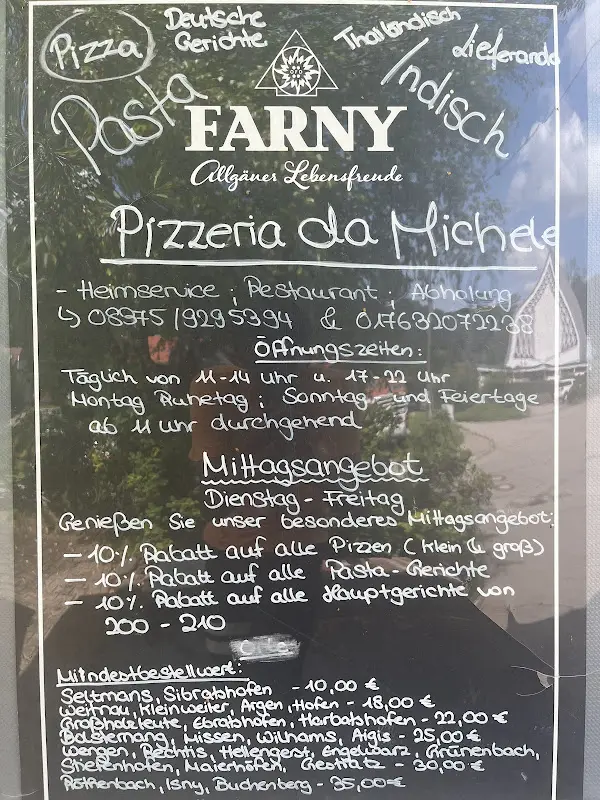 Pizza
Deutsche Gerichte
Thailändisch
Lieferando
Pasta
Indisch
FARNY
Allgäuer Lebensfreude
Pizzeria da Michele
- Heimservice ; Restaurant ; Abholung
↳ 08975/9295394 & 017632072238
Öffnungszeiten:
Täglich von 11-14 Uhr u. 17-22 Uhr
Montag Ruhetag ; Sonntag- und Feiertage
ab 11 uhr durchgehend
Mittagsangebot
Dienstag - Freitag
Genießen Sie unser besonderes Mittagsangebot:
- 10% Rabatt auf alle Pizzen (klein & groß)
- 10% Rabatt auf alle Pasta-Gerichte
- 10% Rabatt auf alle Hauptgerichte von
200 - 210
Orte
Mindestbestellwert:
Seltmans, Sibratshofen - 10,00 €
Weitnau, Kleinweiler, Argen, Hofen - 18,00 €
Großholzleute, Ebratshofen, Harbatshofen - 22,00 €
Bolsternang, Missen, Wilhams, Aigis - 25,00 €
Wengen, Rechtis, Hellengerst, Engelwarz, Grünenbach,
Stiefenhofen, Maierhöfen, Gestratz - 30,00 €
Röthenbach, Isny, Buchenberg - 35,00€